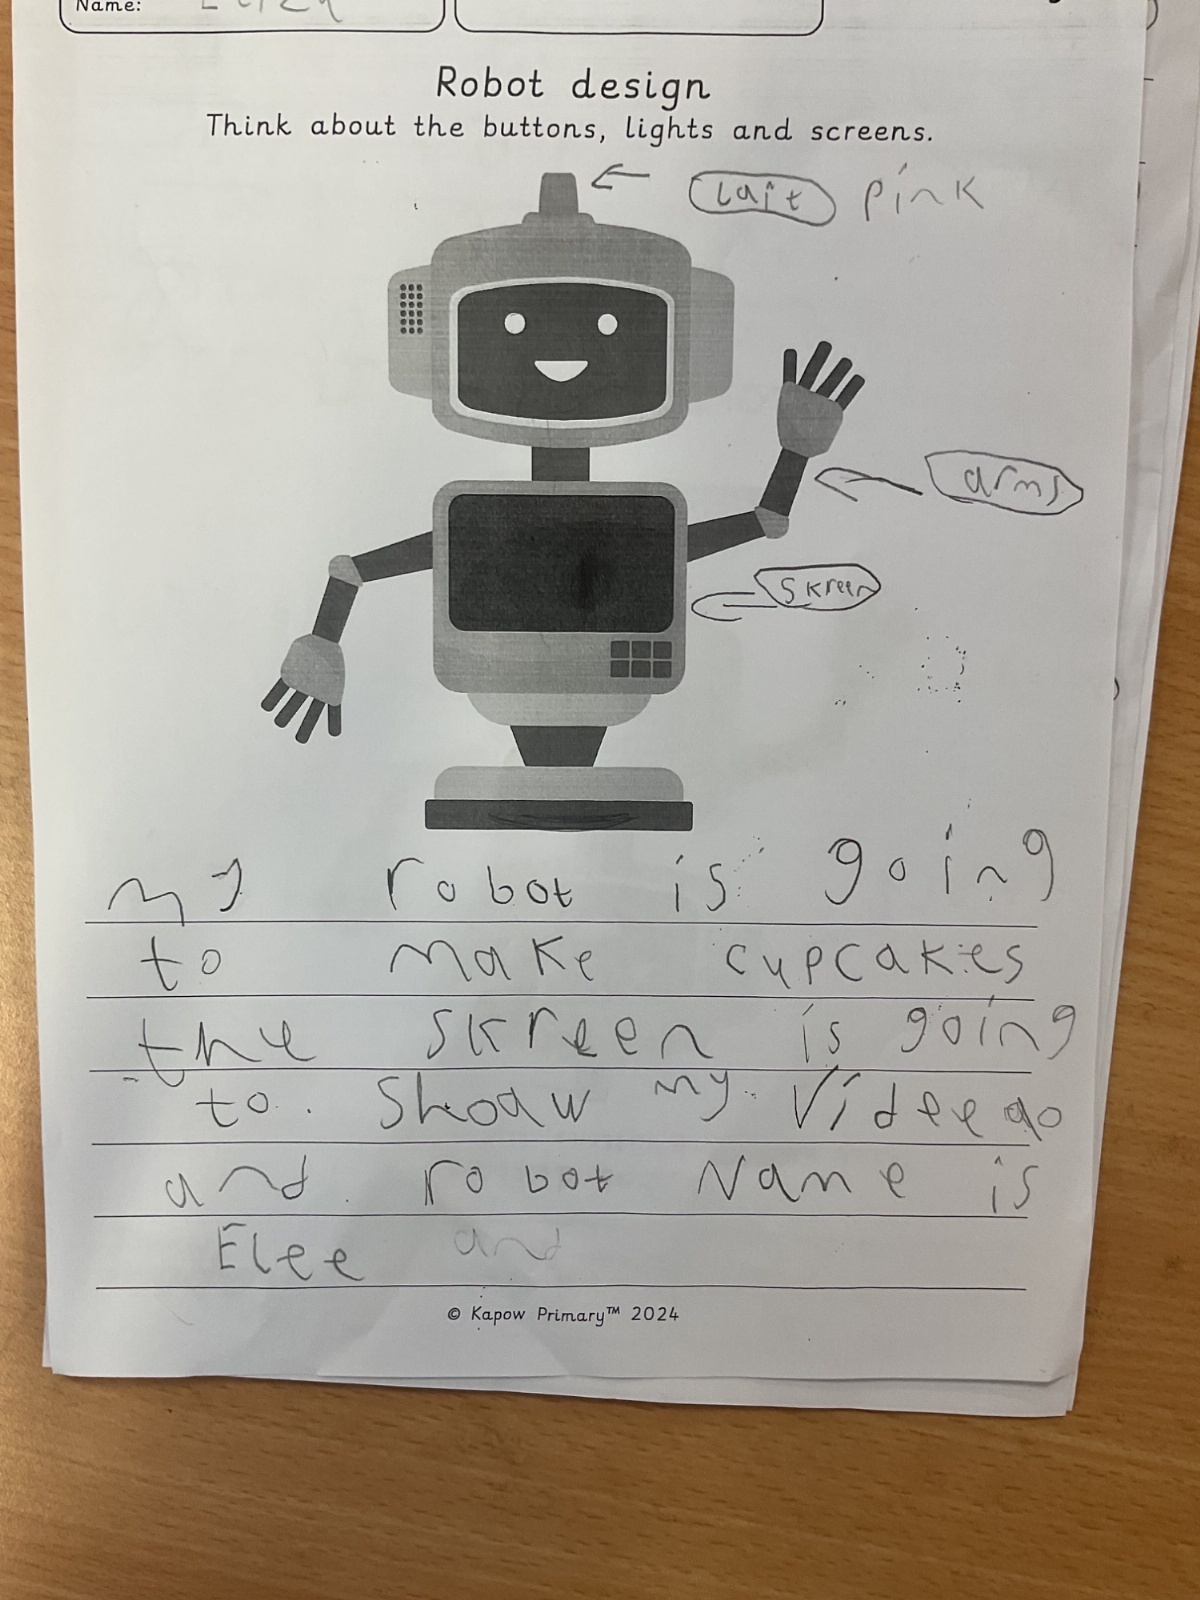 Name:
Robot design
Think about the buttons, lights and screens.
lait pink
arms
skreen
my robot is going
to make cupcakes
the skreen is going
to. Shoaw my Videeao
and robot Name is
Elee and
© Kapow Primary™ 2024